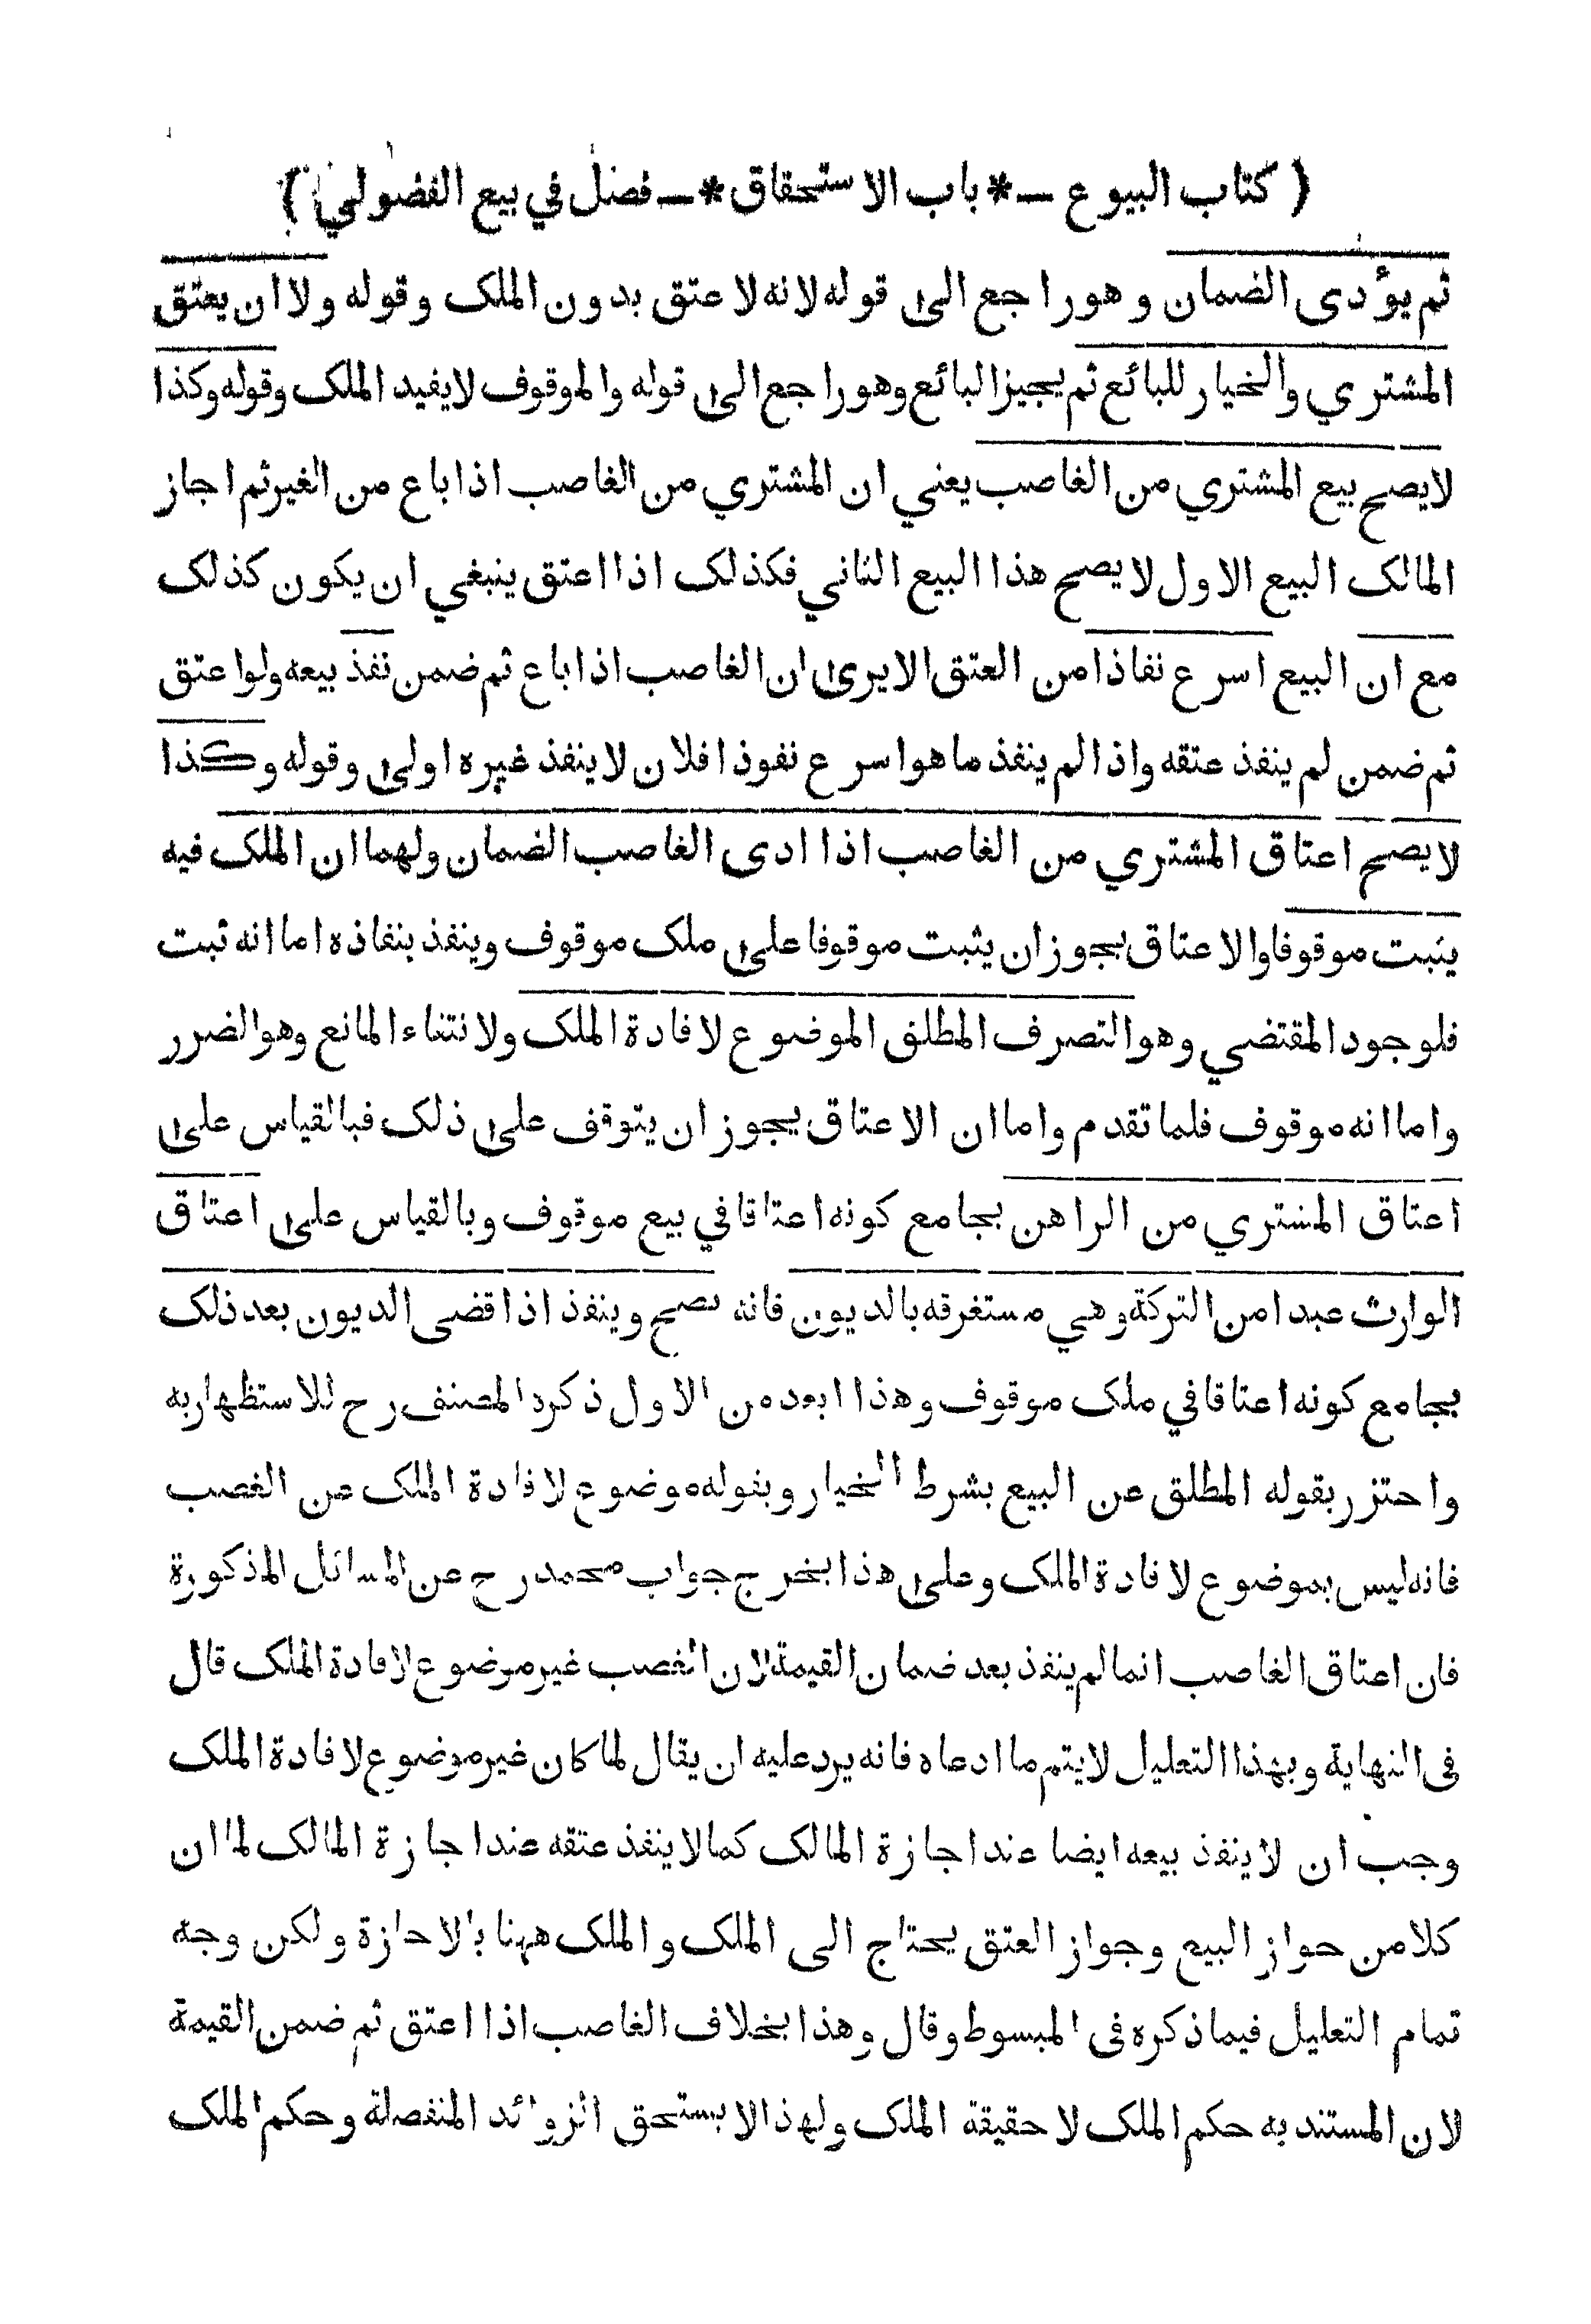 ( كتاب البيوع —* باب الاستحقاق *— فصل في بيع الفضولي )
ثم يؤدى الضمان وهو راجع الى قوله لانه لا عتق بدون الملك وقوله ولا ان يعتق
المشتري والخيار للبائع ثم يجيز البائع وهو راجع الى قوله والموقوف لا يفيد الملك وقوله وكذا
لا يصح بيع المشتري من الغاصب يعني ان المشتري من الغاصب اذا باع من الغير ثم اجاز
المالك البيع الاول لا يصح هذا البيع الثاني فكذلك اذا اعتق ينبغي ان يكون كذلك
مع ان البيع اسرع نفاذا من العتق الا يرى ان الغاصب اذا باع ثم ضمن نفذ بيعه ولو اعتق
ثم ضمن لم ينفذ عتقه واذا لم ينفذ ما هو اسرع نفوذا فلان لا ينفذ غيره اولى وقوله وكذا
لا يصح اعتاق المشتري من الغاصب اذا ادى الغاصب الضمان ولهما ان الملك فيه
يثبت موقوفا والاعتاق يجوز ان يثبت موقوفا على ملك موقوف وينفذ بنفاذه اما انه ثبت
فلوجود المقتضي وهو التصرف المطلق الموضوع لافادة الملك ولانتفاء المانع وهو الضرر
واما انه موقوف فلما تقدم واما ان الاعتاق يجوز ان يتوقف على ذلك فبالقياس على
اعتاق المشتري من الراهن بجامع كونه اعتاقا في بيع موقوف وبالقياس على اعتاق
الوارث عبدا من التركة وهي مستغرقه بالديون فانه يصح وينفذ اذا قضى الديون بعد ذلك
بجامع كونه اعتاقا في ملك موقوف وهذا ابعد من الاول ذكره المصنف رح للاستظهار به
واحترز بقوله المطلق عن البيع بشرط الخيار وبقوله موضوع لافادة الملك عن الغصب
فانه ليس بموضوع لافادة الملك وعلى هذا يخرج جواب محمد رح عن المسائل المذكورة
فان اعتاق الغاصب انما لم ينفذ بعد ضمان القيمة لان الغصب غير موضوع لافادة الملك قال
فى النهاية وبهذا التعليل لا يتم ما ادعاه فانه يرد عليه ان يقال لما كان غير موضوع لافادة الملك
وجب ان لا ينفذ بيعه ايضا عند اجازة المالك كما لا ينفذ عتقه عند اجازة المالك لما ان
كلا من جواز البيع وجواز العتق يحتاج الى الملك والملك ههنا بالاجازة ولكن وجه
تمام التعليل فيما ذكره فى المبسوط وقال وهذا بخلاف الغاصب اذا اعتق ثم ضمن القيمة
لان المستند به حكم الملك لا حقيقة الملك ولهذا لا يستحق الزوائد المنفصلة وحكم الملك